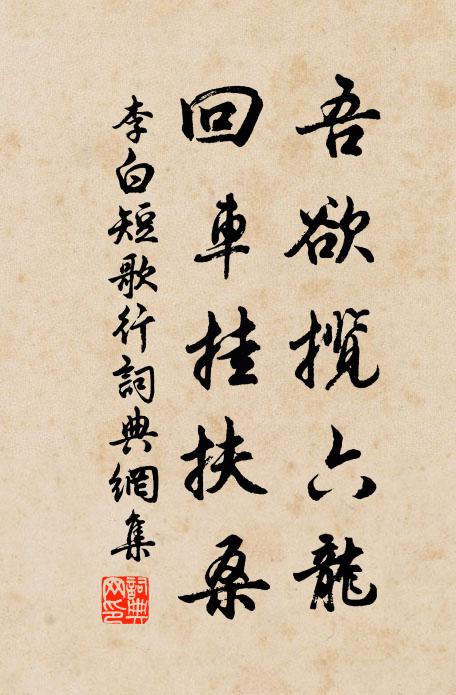 吾欲攬六龍
回車挂扶桑
李白短歌行詞典網集
詞典網印